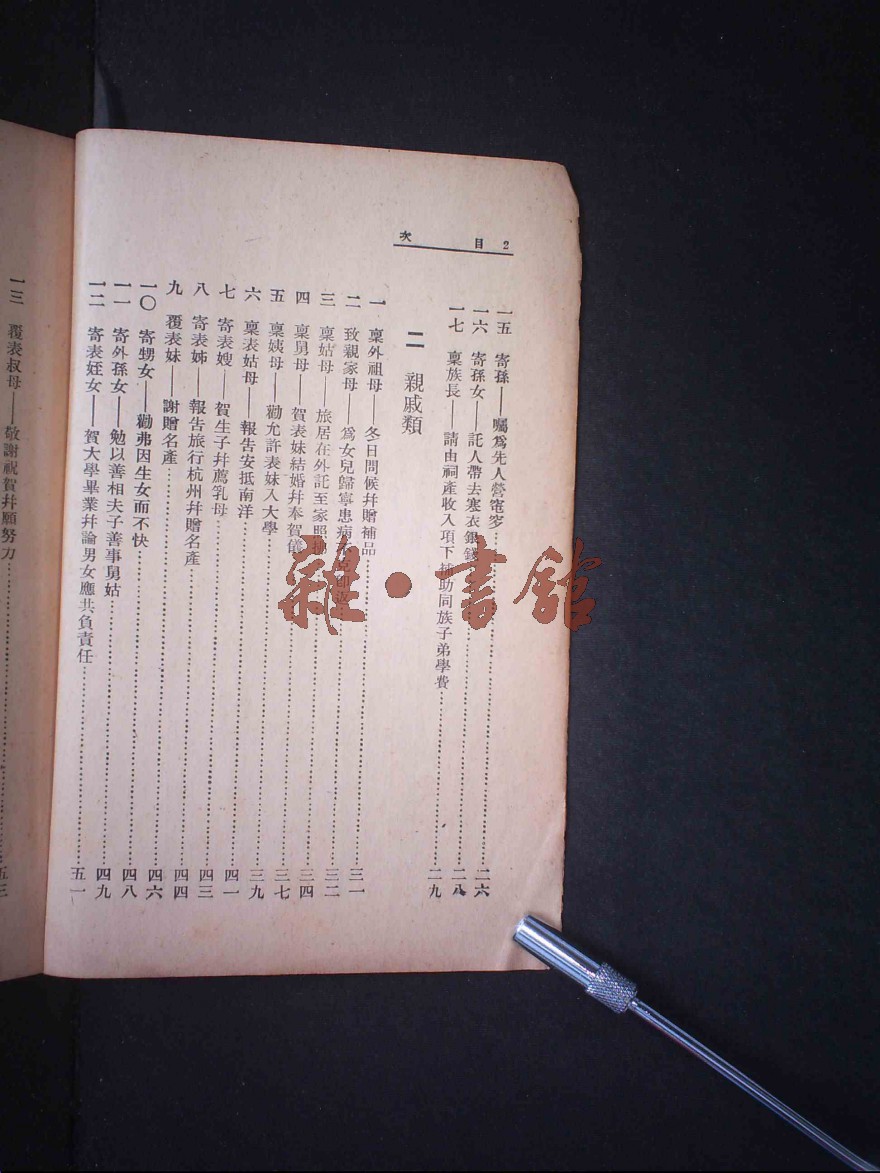 2 目次
一五 寄孫——囑爲先人營窀穸……二六
一六 寄孫女——託人帶去寒衣銀錢……二八
一七 稟族長——請由祠產收入項下補助同族子弟學費……二九
二 親戚類
一 稟外祖母——冬日問候幷贈補品……三一
二 致親家母——爲女兒歸寧患病不克卽返……三二
三 稟姑母——旅居在外託至家照拂……三四
四 稟舅母——賀表妹結婚幷奉賀儀……三七
五 稟姨母——勸允許表妹入大學……三九
六 稟表姑母——報告安抵南洋……四一
七 寄表嫂——賀生子幷薦乳母……四三
八 寄表姊——報告旅行杭州幷贈名產……四四
九 覆表妹——謝贈名產……四六
一〇 寄甥女——勸弗因生女而不快……四八
一一 寄外孫女——勉以善相夫子善事舅姑……四九
一二 寄表姪女——賀大學畢業幷論男女應共負責任……五一
一三 覆表叔母——敬謝祝賀幷願努力……五三
雜·書館